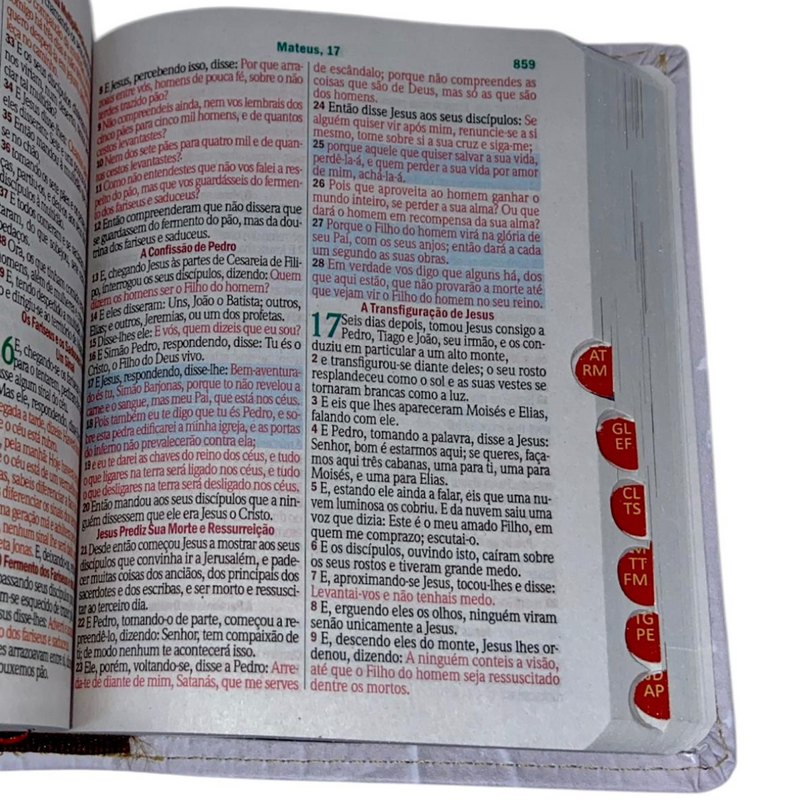 Mateus, 17
859
8 E Jesus, percebendo isso, disse: Por que arra-
zoais entre vós, homens de pouca fé, sobre o não
terdes trazido pão?
9 Não compreendeis ainda, nem vos lembrais dos
cinco pães para cinco mil homens, e de quantos
cestos levantastes?
10 Nem dos sete pães para quatro mil e de quan-
tos cestos levantastes?
11 Como não entendestes que não vos falei a res-
peito do pão, mas que vos guardásseis do fermen-
to dos fariseus e saduceus?
12 Então compreenderam que não dissera que
se guardassem do fermento do pão, mas da dou-
trina dos fariseus e saduceus.
A Confissão de Pedro
13 E, chegando Jesus às partes de Cesareia de Fili-
po, interrogou os seus discípulos, dizendo: Quem
dizem os homens ser o Filho do homem?
14 E eles disseram: Uns, João o Batista; outros,
Elias; e outros, Jeremias, ou um dos profetas.
15 Disse-lhes ele: E vós, quem dizeis que eu sou?
16 E Simão Pedro, respondendo, disse: Tu és o
Cristo, o Filho do Deus vivo.
17 E Jesus, respondendo, disse-lhe: Bem-aventura-
do és tu, Simão Barjonas, porque to não revelou a
carne e o sangue, mas meu Pai, que está nos céus.
18 Pois também eu te digo que tu és Pedro, e so-
bre esta pedra edificarei a minha igreja, e as portas
do inferno não prevalecerão contra ela;
19 e eu te darei as chaves do reino dos céus, e tudo
o que ligares na terra será ligado nos céus, e tudo
o que desligares na terra será desligado nos céus.
20 Então mandou aos seus discípulos que a nin-
guém dissessem que ele era Jesus o Cristo.
Jesus Prediz Sua Morte e Ressurreição
21 Desde então começou Jesus a mostrar aos seus
discípulos que convinha ir a Jerusalém, e pade-
cer muitas coisas dos anciãos, dos principais dos
sacerdotes e dos escribas, e ser morto e ressusci-
tar ao terceiro dia.
22 E Pedro, tomando-o de parte, começou a re-
preendê-lo, dizendo: Senhor, tem compaixão de
ti; de modo nenhum te acontecerá isso.
23 Ele, porém, voltando-se, disse a Pedro: Arre-
da-te de diante de mim, Satanás, que me serves
de escândalo; porque não compreendes as
coisas que são de Deus, mas só as que são
dos homens.
24 Então disse Jesus aos seus discípulos: Se
alguém quiser vir após mim, renuncie-se a si
mesmo, tome sobre si a sua cruz e siga-me;
25 porque aquele que quiser salvar a sua vida,
perdê-la-á, e quem perder a sua vida por amor
de mim, achá-la-á.
26 Pois que aproveita ao homem ganhar o
mundo inteiro, se perder a sua alma? Ou que
dará o homem em recompensa da sua alma?
27 Porque o Filho do homem virá na glória de
seu Pai, com os seus anjos; então dará a cada
um segundo as suas obras.
28 Em verdade vos digo que alguns há, dos
que aqui estão, que não provarão a morte até
que vejam vir o Filho do homem no seu reino.
A Transfiguração de Jesus
17 Seis dias depois, tomou Jesus consigo a
Pedro, Tiago e João, seu irmão, e os con-
duziu em particular a um alto monte,
2 e transfigurou-se diante deles; o seu rosto
resplandeceu como o sol e as suas vestes se
tornaram brancas como a luz.
3 E eis que lhes apareceram Moisés e Elias,
falando com ele.
4 E Pedro, tomando a palavra, disse a Jesus:
Senhor, bom é estarmos aqui; se queres, faça-
mos aqui três cabanas, uma para ti, uma para
Moisés, e uma para Elias.
5 E, estando ele ainda a falar, eis que uma nu-
vem luminosa os cobriu. E da nuvem saiu uma
voz que dizia: Este é o meu amado Filho, em
quem me comprazo; escutai-o.
6 E os discípulos, ouvindo isto, caíram sobre
os seus rostos e tiveram grande medo.
7 E, aproximando-se Jesus, tocou-lhes e disse:
Levantai-vos e não tenhais medo.
8 E, erguendo eles os olhos, ninguém viram
senão unicamente a Jesus.
9 E, descendo eles do monte, Jesus lhes or-
denou, dizendo: A ninguém conteis a visão,
até que o Filho do homem seja ressuscitado
dentre os mortos.
AT
RM
GL
EF
CL
TS
TT
FM
PE
AP